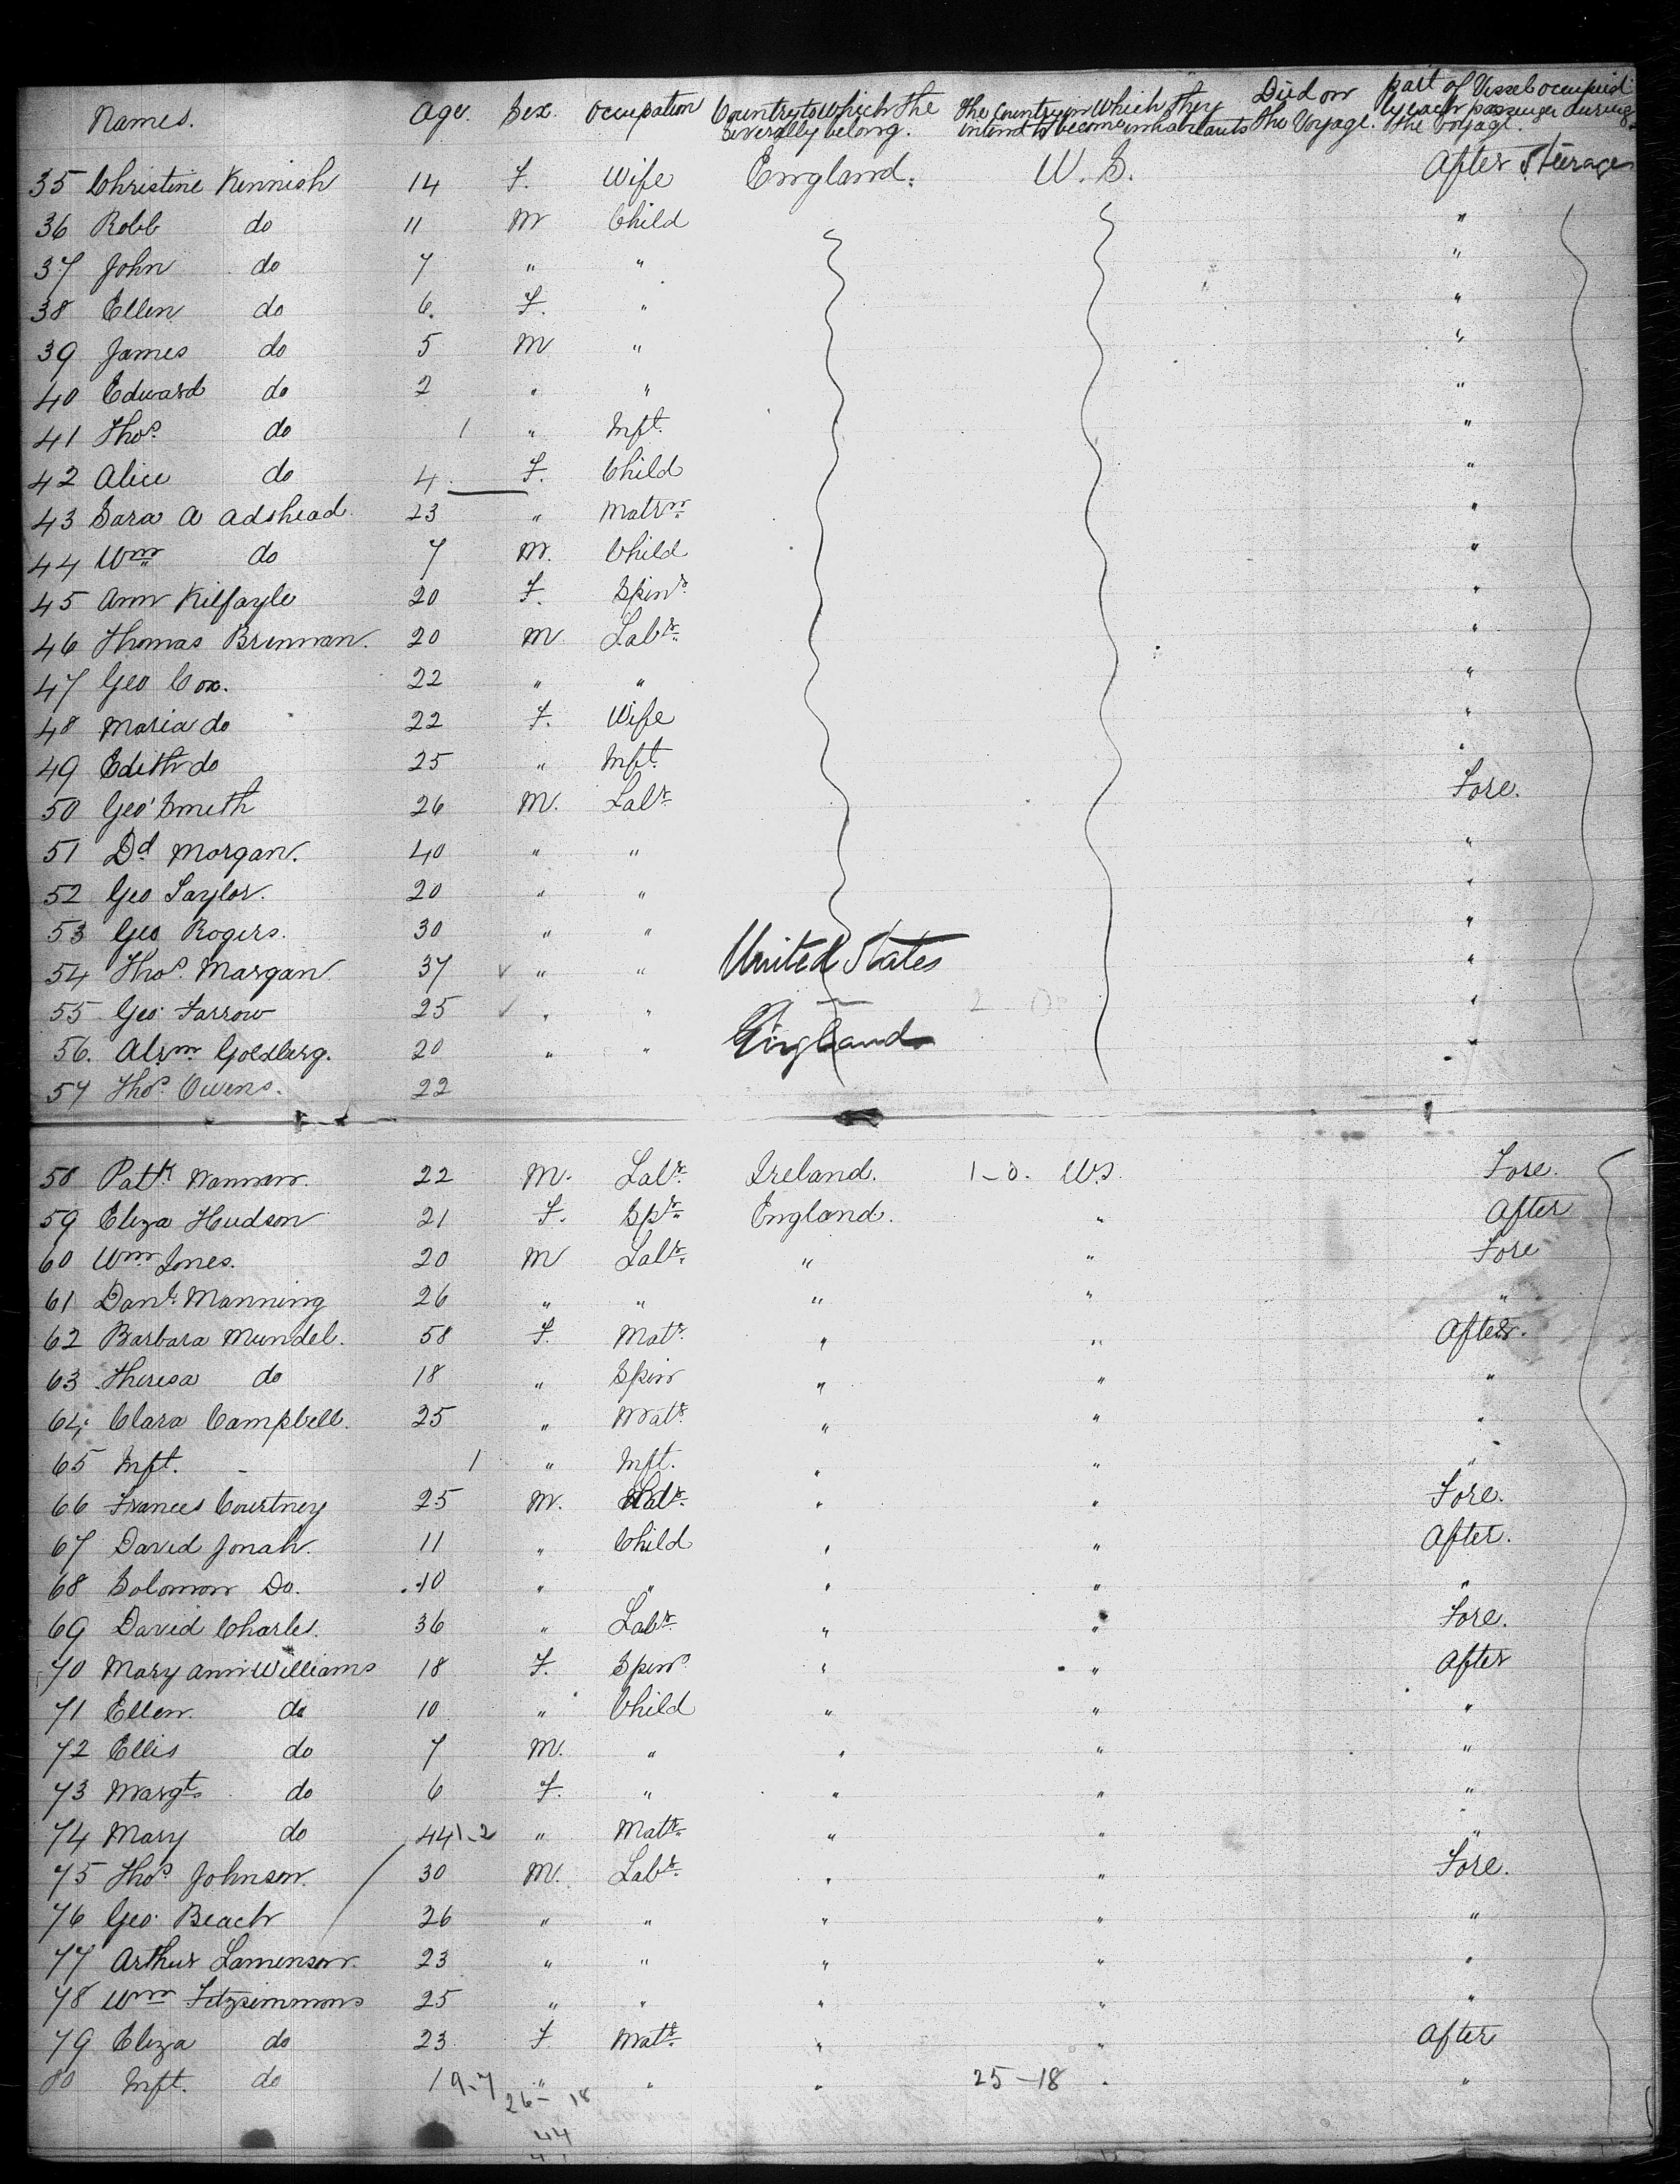 Names. Age. Sex. Occupation Country to which the severally belong. The Country in which they intend to become inhabitants Died on the Voyage. part of Vessel occupied by each passenger during the Voyage.
35 Christine Kennish 14 F. Wife England. U. S. After Steerage
36 Robb do 11 M Child "
37 John do 7 " " "
38 Ellen do 6. F. " "
39 James do 5 M " "
40 Edward do 2 " " "
41 Thos. do 1 " Inft. "
42 Alice do 4 F. Child "
43 Sara A Adshead 23 " Matrn "
44 Wm do 7 M. Child "
45 Ann Kilfayle 20 F. Spinr "
46 Thomas Brennan. 20 M Labr. "
47 Geo Cox. 22 " " "
48 Maria do 22 F. Wife "
49 Edith do 25 " Inft. "
50 Geo Smith 26 M. Labr Fore.
51 Dd Morgan. 40 " " "
52 Geo Taylor. 20 " " "
53 Geo Rogers. 30 " " "
54 Thos. Margan 37 " " United States "
55 Geo. Farrow 25 " " "
56. Abrm Goldberg. 20 " " England "
57 Thos. Owens. 22
58 Patk 22 M. Labr. Ireland. 1-0. U.S. Fore.
59 Eliza Hudson 21 F. Spr. England. " After
60 Wm Jones. 20 M Labr. " " Fore
61 Danl. Manning 26 " " " " "
62 Barbara Mundel. 58 F. Matr. " " After.
63 Theresa do 18 " Spin " " "
64 Clara Campbell. 25 " Matr. " " "
65 Inft. - 1 " Inft. " " "
66 Frances Courtney 25 M. Labr. " " Fore.
67 David Jonah. 11 " Child " " After.
68 Solomon Do. 10 " " " " "
69 David Charles. 36 " Labr. " " Fore.
70 Mary Ann Williams 18 F. Spinr " " After
71 Ellen. do 10 " Child " " "
72 Ellis do 7 M. " " " "
73 Margt. do 6 F. " " " "
74 Mary do 44 1-2 " Matr. " " "
75 Thos Johnson. 30 M. Labr. " " Fore.
76 Geo. Beach 26 " " " " "
77 Arthur Lamenson. 23 " " " " "
78 Wm Fitzsimmons 25 " " " " "
79 Eliza do 23 F Matr. " " After
80 Inft. do 1 9-7 " " " 25-18 " "
26-18
44